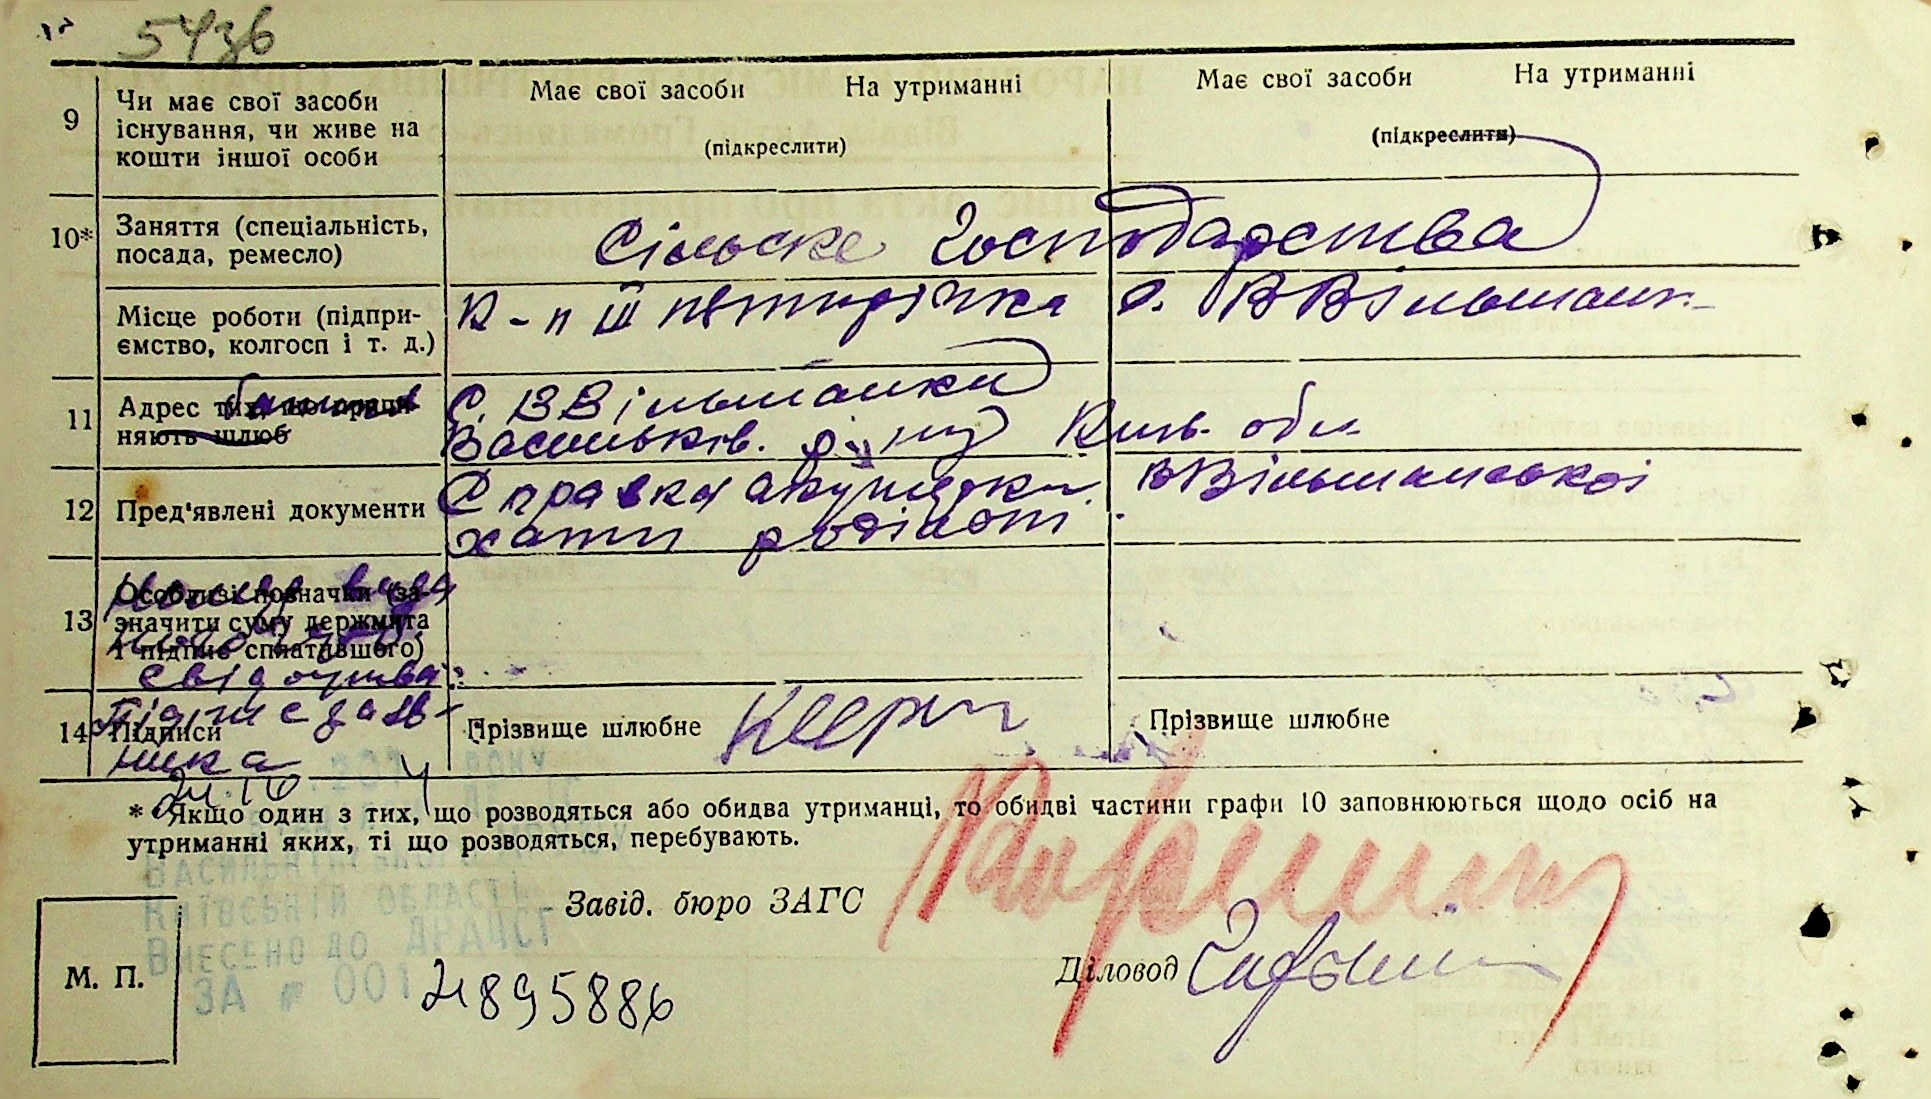 5436
9 Чи має свої засоби існування, чи живе на кошти іншої особи
Має свої засоби На утриманні
(підкреслити)
Має свої засоби На утриманні
(підкреслити)
10* Заняття (спеціальність, посада, ремесло)
Сільське господарства
Місце роботи (підпри-
ємство, колгосп і т. д.)
К-п III пятирічка с. ВВільшанк-
11 Адрес тих, що прини-
няють шлюб
С. ВВільшанки
Васильків. р-ну Київ. обл.
12 Пред'явлені документи
Справка акушерки. ВВільшанської
хати родільні.
13 Особливі позначки (за-
значити суму держмита
і підпис сплатившого)
свідоцтва
14 Підписи
Підпис заяв-
ника
Прізвище шлюбне
Прізвище шлюбне
* Якщо один з тих, що розводяться або обидва утриманці, то обидві частини графи 10 заповнюються щодо осіб на
утриманні яких, ті що розводяться, перебувають.
Васильківського
Київській області
Внесено до ДРАЦСГ
за № 001
21895886
М. П.
Завід. бюро ЗАГС
Діловод